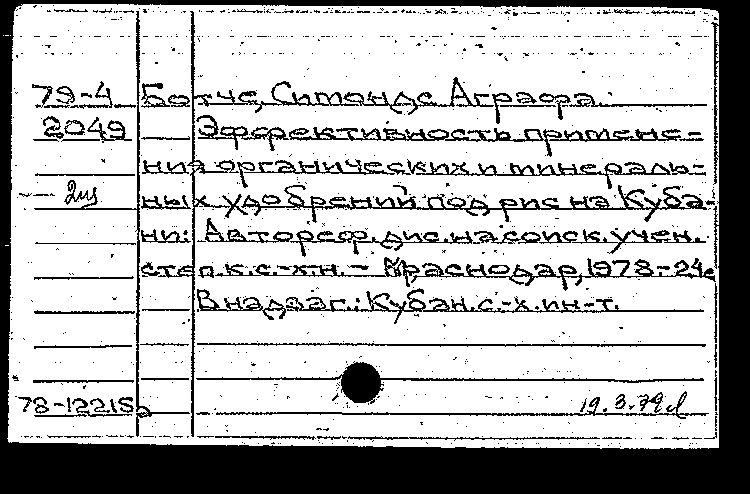 79-4 Ботче, Ситонде Аграфа.
2049 Эффективность примене-
ния органических и минераль-
2 ных удобрений под рис на Куба-
ни: Автореф. дис. на соиск. учен.
степ. к. с.-х. н. - Краснодар, 1978.-24с
В надзаг.: Кубан. с.-х. ин-т.
78-12215а 19.3.79